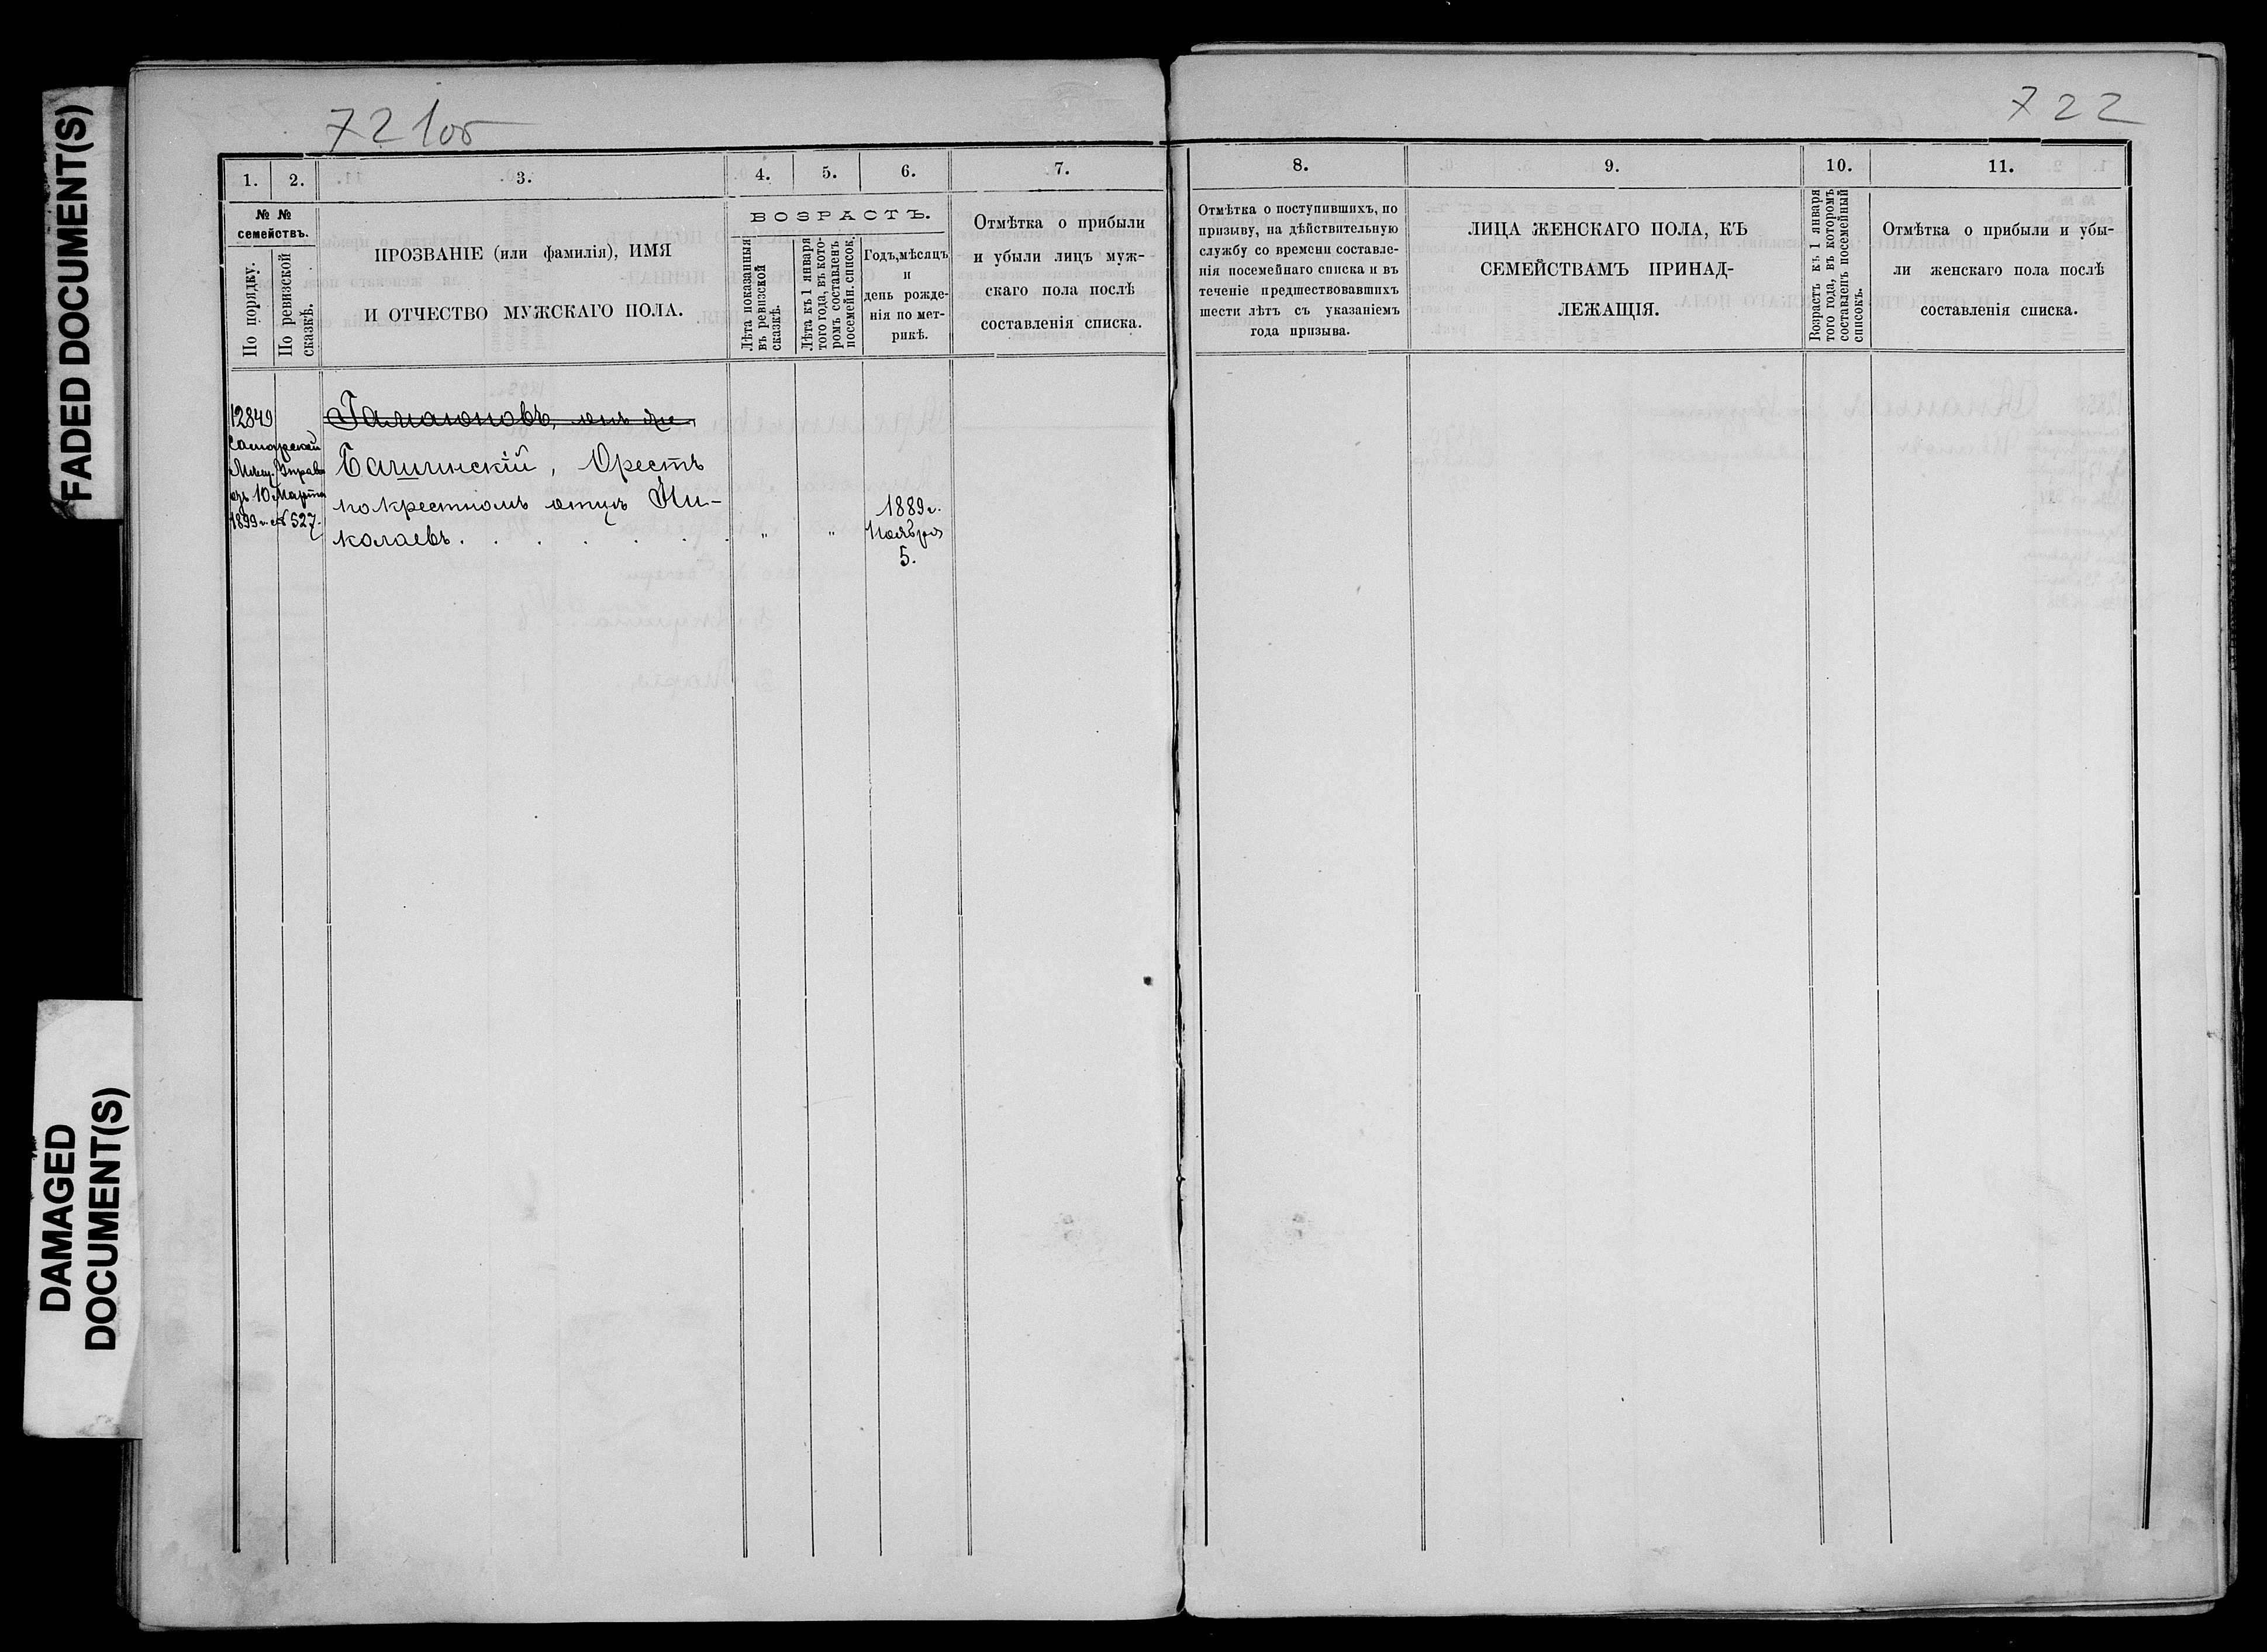 FADED DOCUMENT(S)
DAMAGED
DOCUMENT(S)
721об
722
1.
2.
3.
4.
5.
6.
7.
8.
9.
10.
11.
№ №
семействъ.
По порядку.
По ревизской
сказкѣ.
ПРОЗВАНІЕ (или фамилія), ИМЯ
И ОТЧЕСТВО МУЖСКАГО ПОЛА.
ВОЗРАСТЪ.
Лѣта показанныя
въ ревизской
сказкѣ.
Лѣта къ 1 января
того года, въ кото-
ромъ составленъ
посемейн. список.
Годъ, мѣсяцъ
и
день рожде-
нія по мет-
рикѣ.
Отмѣтка о прибыли
и убыли лицъ муж-
скаго пола послѣ
составленія списка.
Отмѣтка о поступившихъ, по
призыву, на дѣйствительную
службу со времени составле-
нія посемейнаго списка и въ
теченіе предшествовавшихъ
шести лѣтъ съ указаніемъ
года призыва.
ЛИЦА ЖЕНСКАГО ПОЛА, КЪ
СЕМЕЙСТВАМЪ ПРИНАД-
ЛЕЖАЩІЯ.
Возрастъ къ 1 января
того года, въ которомъ
составленъ посемейный
списокъ.
Отмѣтка о прибыли и убы-
ли женскаго пола послѣ
составленія списка.
12849
Самарской
Мѣщ. Управы
10 Марта
1899 г. № 527.
Орестъ
по крестномъ отцѣ Ни-
колаевъ. . . . . . . " "
1889 г.
Ноября
5.